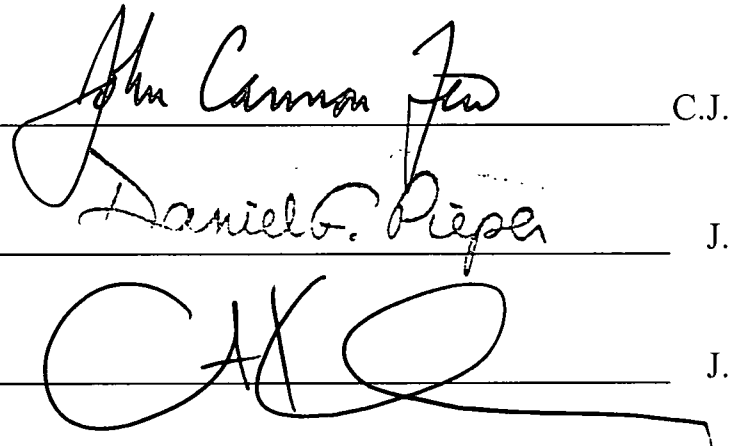 John Cannon Few C.J.
Daniel F. Pieper J.
J.